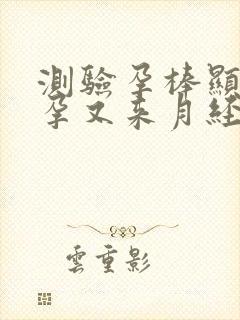 測驗孕棒顯
孕又来月經
雲重影